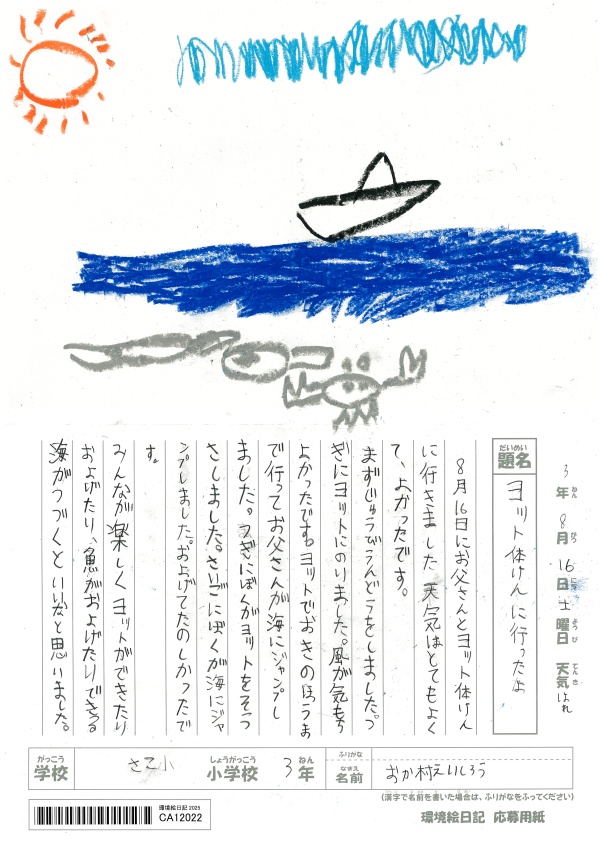 3年 8月 16日 土曜日 天気 はれ
ねん がつ にち ようび てんき
だいめい
題名
ヨット体けんに行ったよ
8月16日にお父さんとヨット体けん
に行きました 天気はとてもよく
て、よかったです。
まずじゅうびうんどうをしました。つ
ぎにヨットにのりました。風が気もち
よかったです。ヨットでおきのほうま
で行ってお父さんが海にジャンプし
ました。つぎにぼくがヨットをそう
さしました。さいごにぼくが海にジャ
ンプしました。およげてたのしかったで
す。
みんなが楽しくヨットができたり
およげたり、魚がおよげたりできる
海がつづくといいなと思いました。
がっこう しょうがっこう ねん ふりがな
学校 さこ小 小学校 3年
なまえ
名前 おか村えいしろう
(漢字で名前を書いた場合は、ふりがなをふってください)
環境絵日記 2025
CA12022
環境絵日記 応募用紙